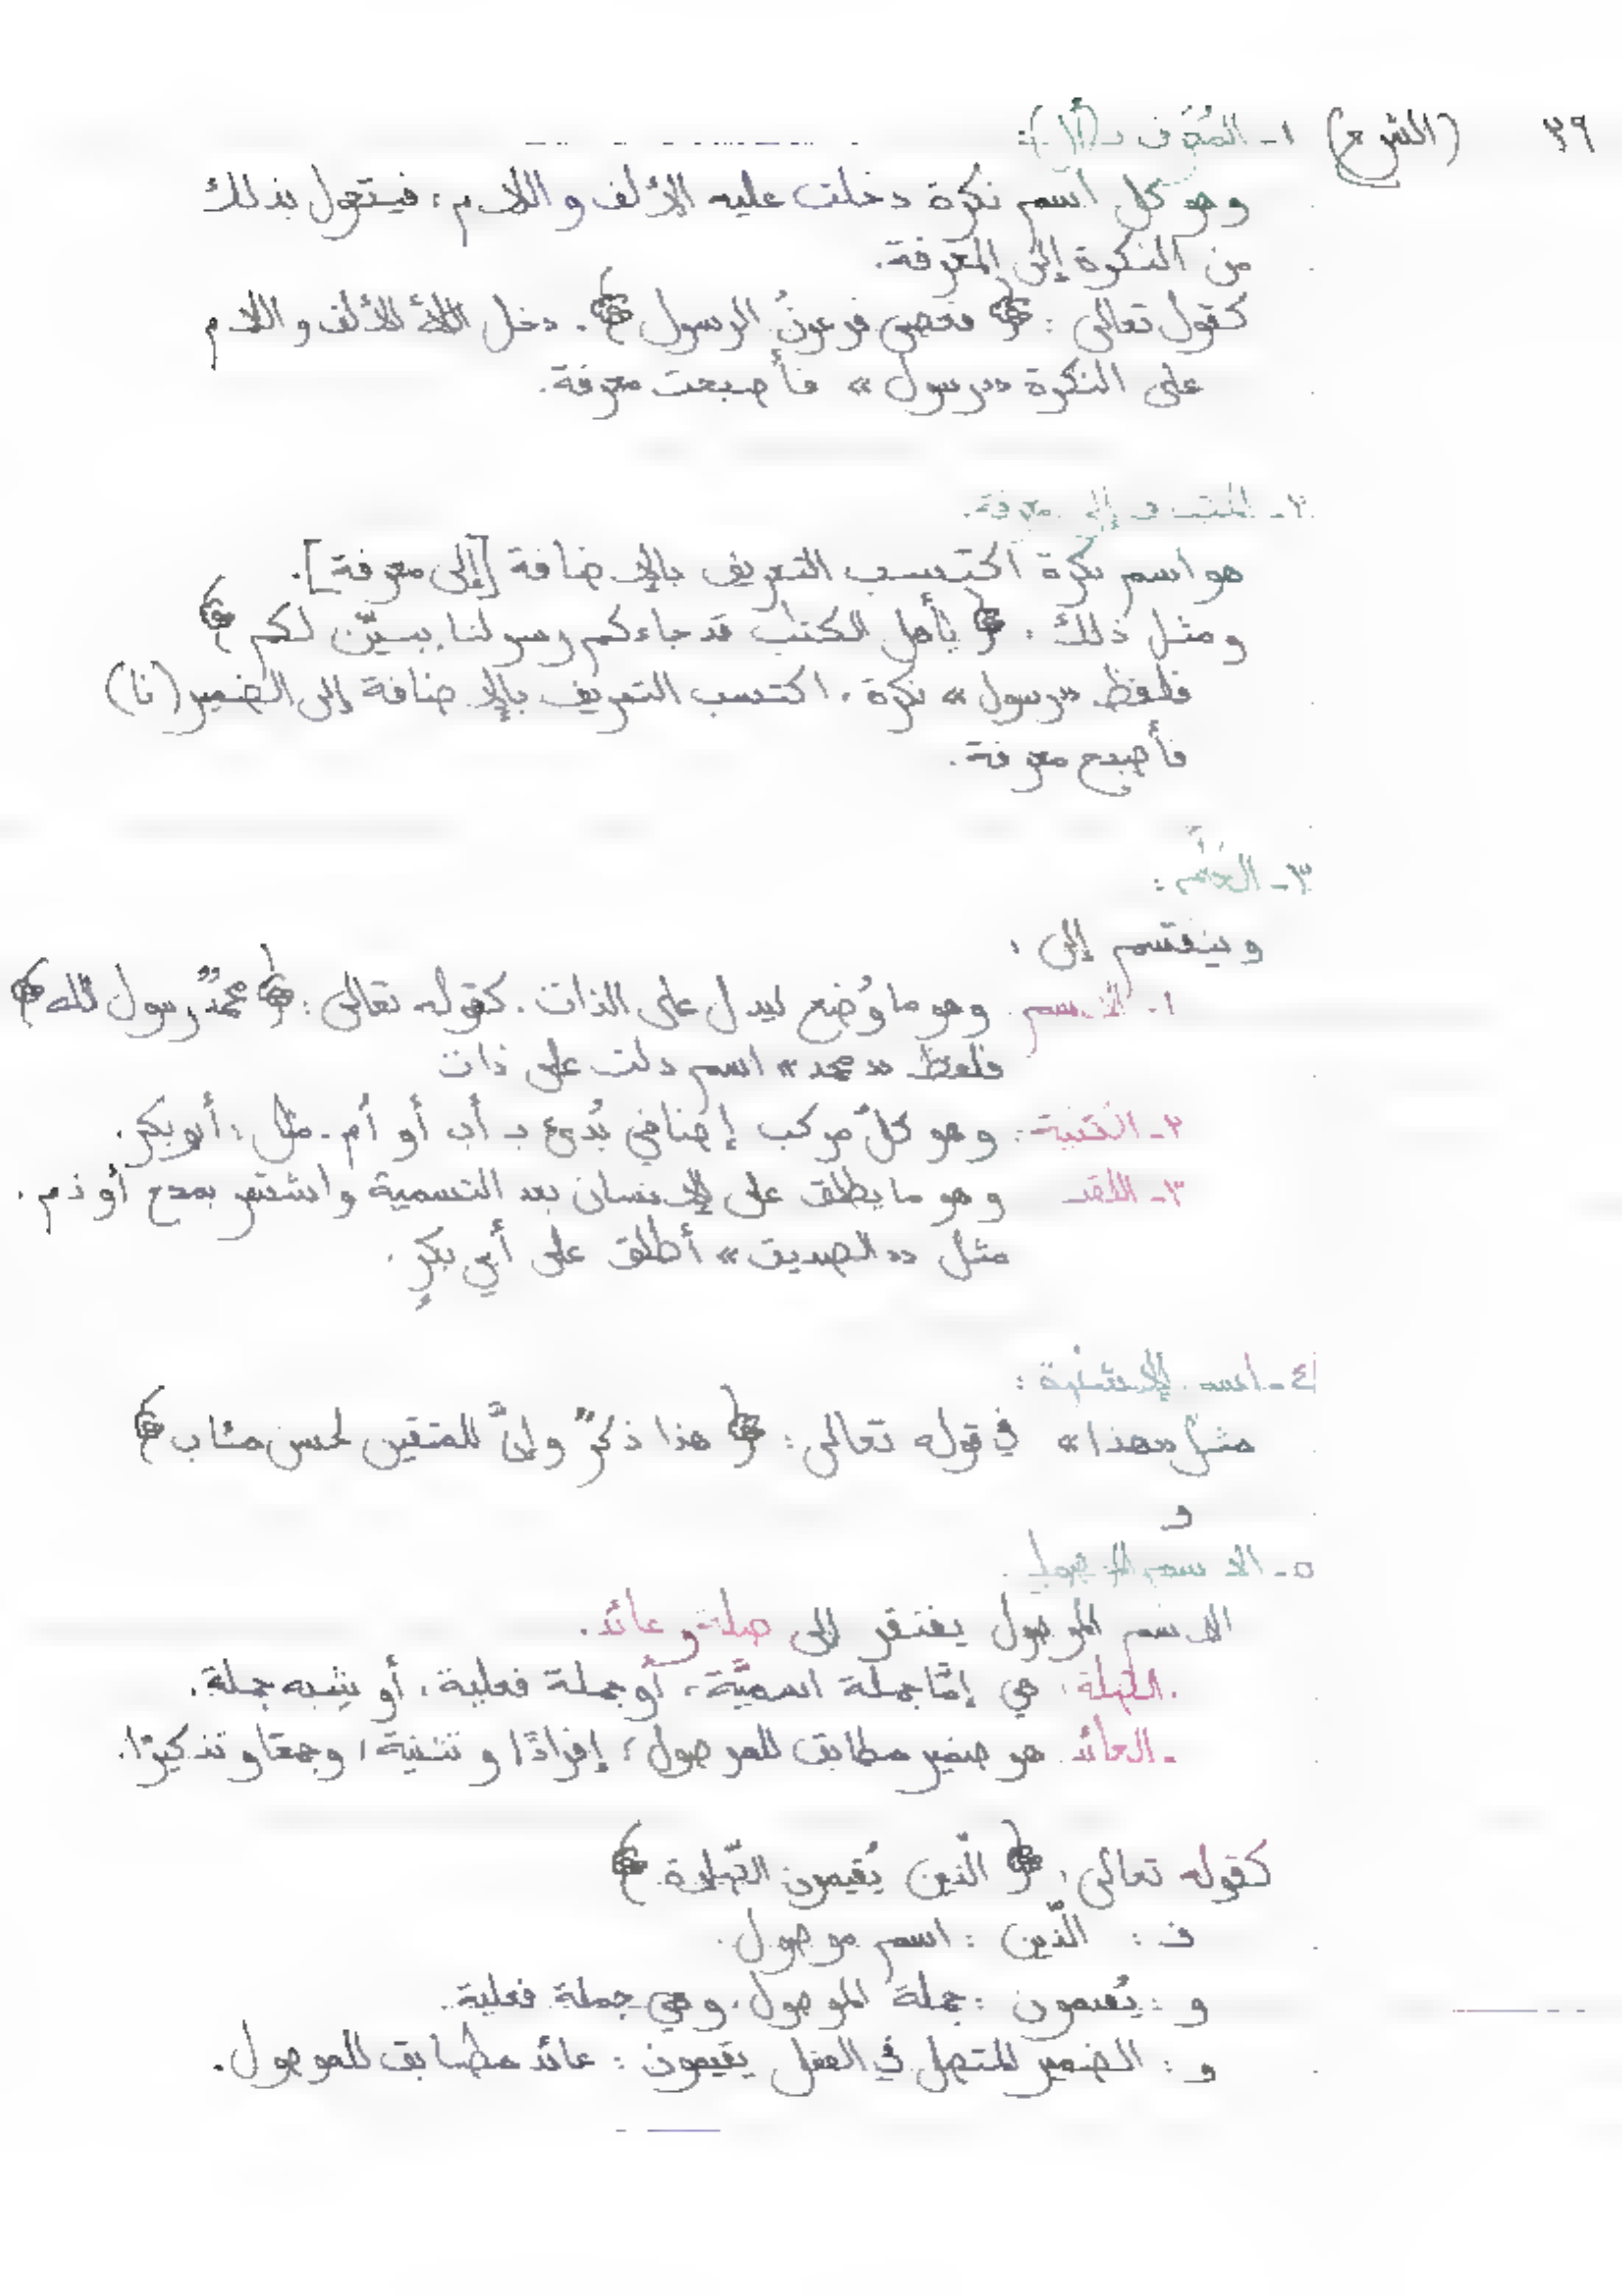 ٣٩ (الشرح) ١- المُعَرّف بـ(أل):
وهو كل اسم نكرة دخلت عليه الألف واللام، فيتحول بذلك
من النكرة إلى المعرفة.
كقول تعالى: ﴿فعصى فرعونُ الرسول﴾. دخل الألف واللام
على النكرة «رسول» فأصبحت معرفة.
٢- المضاف إلى معرفة.
هو اسم نكرة اكتسب التعريف بالإضافة [إلى معرفة].
ومثل ذلك: ﴿يأهل الكتب قد جاءكم رسولنا يبيّن لكم﴾
فلفظ «رسول» نكرة، اكتسب التعريف بالإضافة إلى الضمير (نا)
فأصبح معرفة.
٣- العَلَم:
وينقسم إلى:
١- الاسم وهو ما وُضع ليدل على الذات. كقوله تعالى: ﴿محمدٌ رسول الله﴾
فلفظ «محمد» اسم دلت على ذات
٢- الكنية: وهو كلّ مركب إضافي بُدئ بـ أب أو أم. مثل: أبو بكر.
٣- اللقب وهو ما يطلق على الإنسان بعد التسمية واشتهر بمدح أو ذم.
مثل «الصديق» أطلق على أبي بكرٍ.
٤- اسم الإشارة:
مثل «هذا» في قوله تعالى: ﴿هذا ذكرٌ وإنَّ للمتقين لحسن مئاب﴾
و
٥- الاسم الموصول
الاسم الموصول يفتقر إلى صلة وعائد.
- الصلة: هي إمّا جملة اسميّة، أو جملة فعلية، أو شِبه جملة.
- العائد هو ضمير مطابق للموصول؛ إفرادًا وتثنية، وجمعًا وتذكيرًا.
كقوله تعالى: ﴿الّذين يُقيمون الصّلوة﴾
فـ: الّذين: اسم موصول.
و: يُقيمون: جملة الموصول، وهي جملة فعلية.
و: الضمير المتصل في الفعل يقيمون: عائد مطابق للموصول.